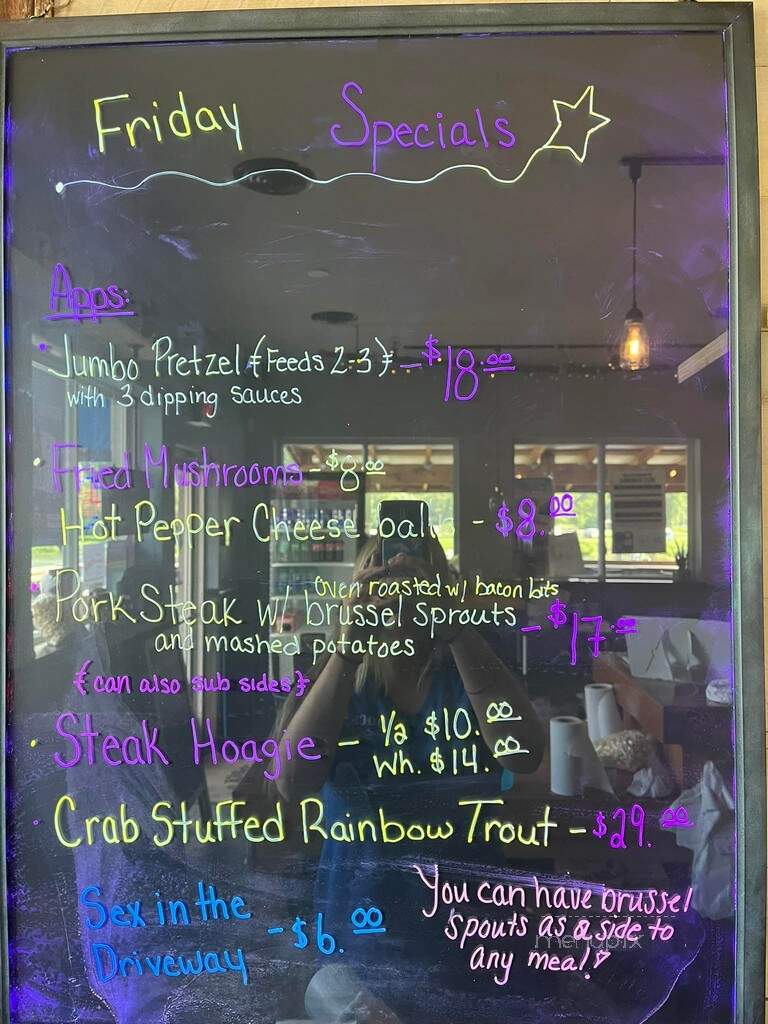 Friday Specials
Apps:
Jumbo Pretzel {Feeds 2-3} - $18.00
with 3 dipping sauces
Fried Mushrooms - $8.00
Hot Pepper Cheese balls - $8.00
oven roasted w/ bacon bits
Pork Steak w/ brussel sprouts - $17.00
and mashed potatoes
{can also sub sides}
Steak Hoagie - 1/2 $10.00
Wh. $14.00
Crab Stuffed Rainbow Trout - $29.00
Sex in the
Driveway - $6.00
You can have brussel
spouts as a side to
any meal!
menupix